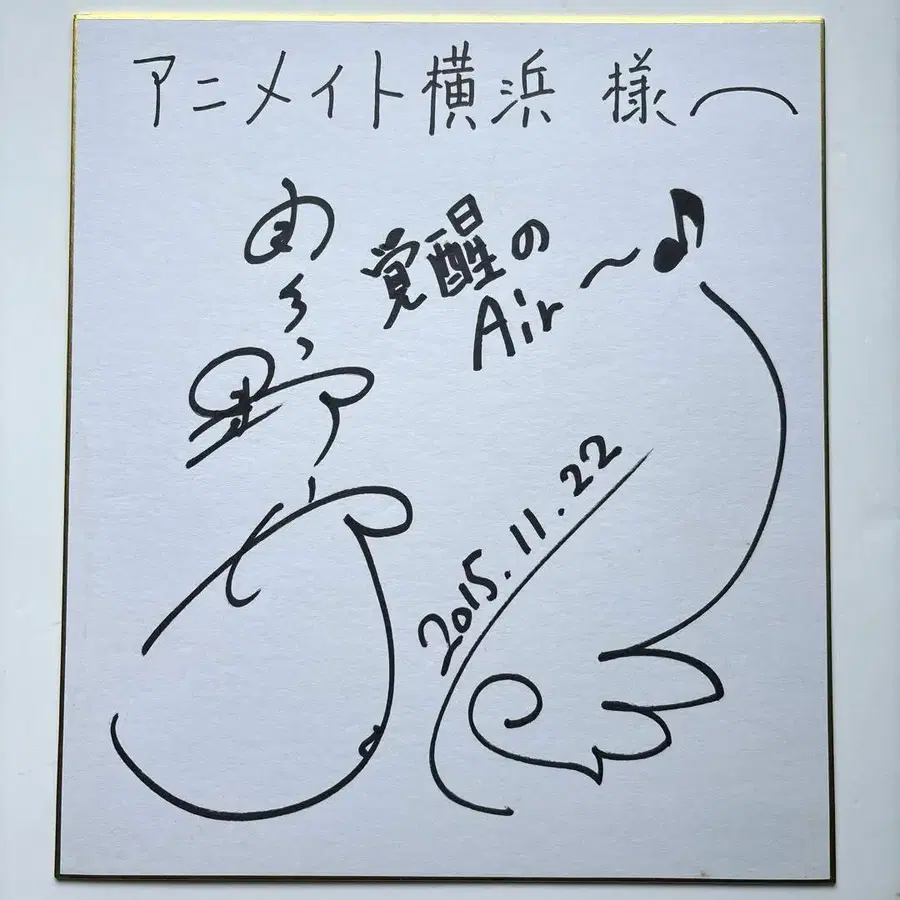 アニメイト横浜 様へ
覚醒の
Air〜♪
2015.11.22